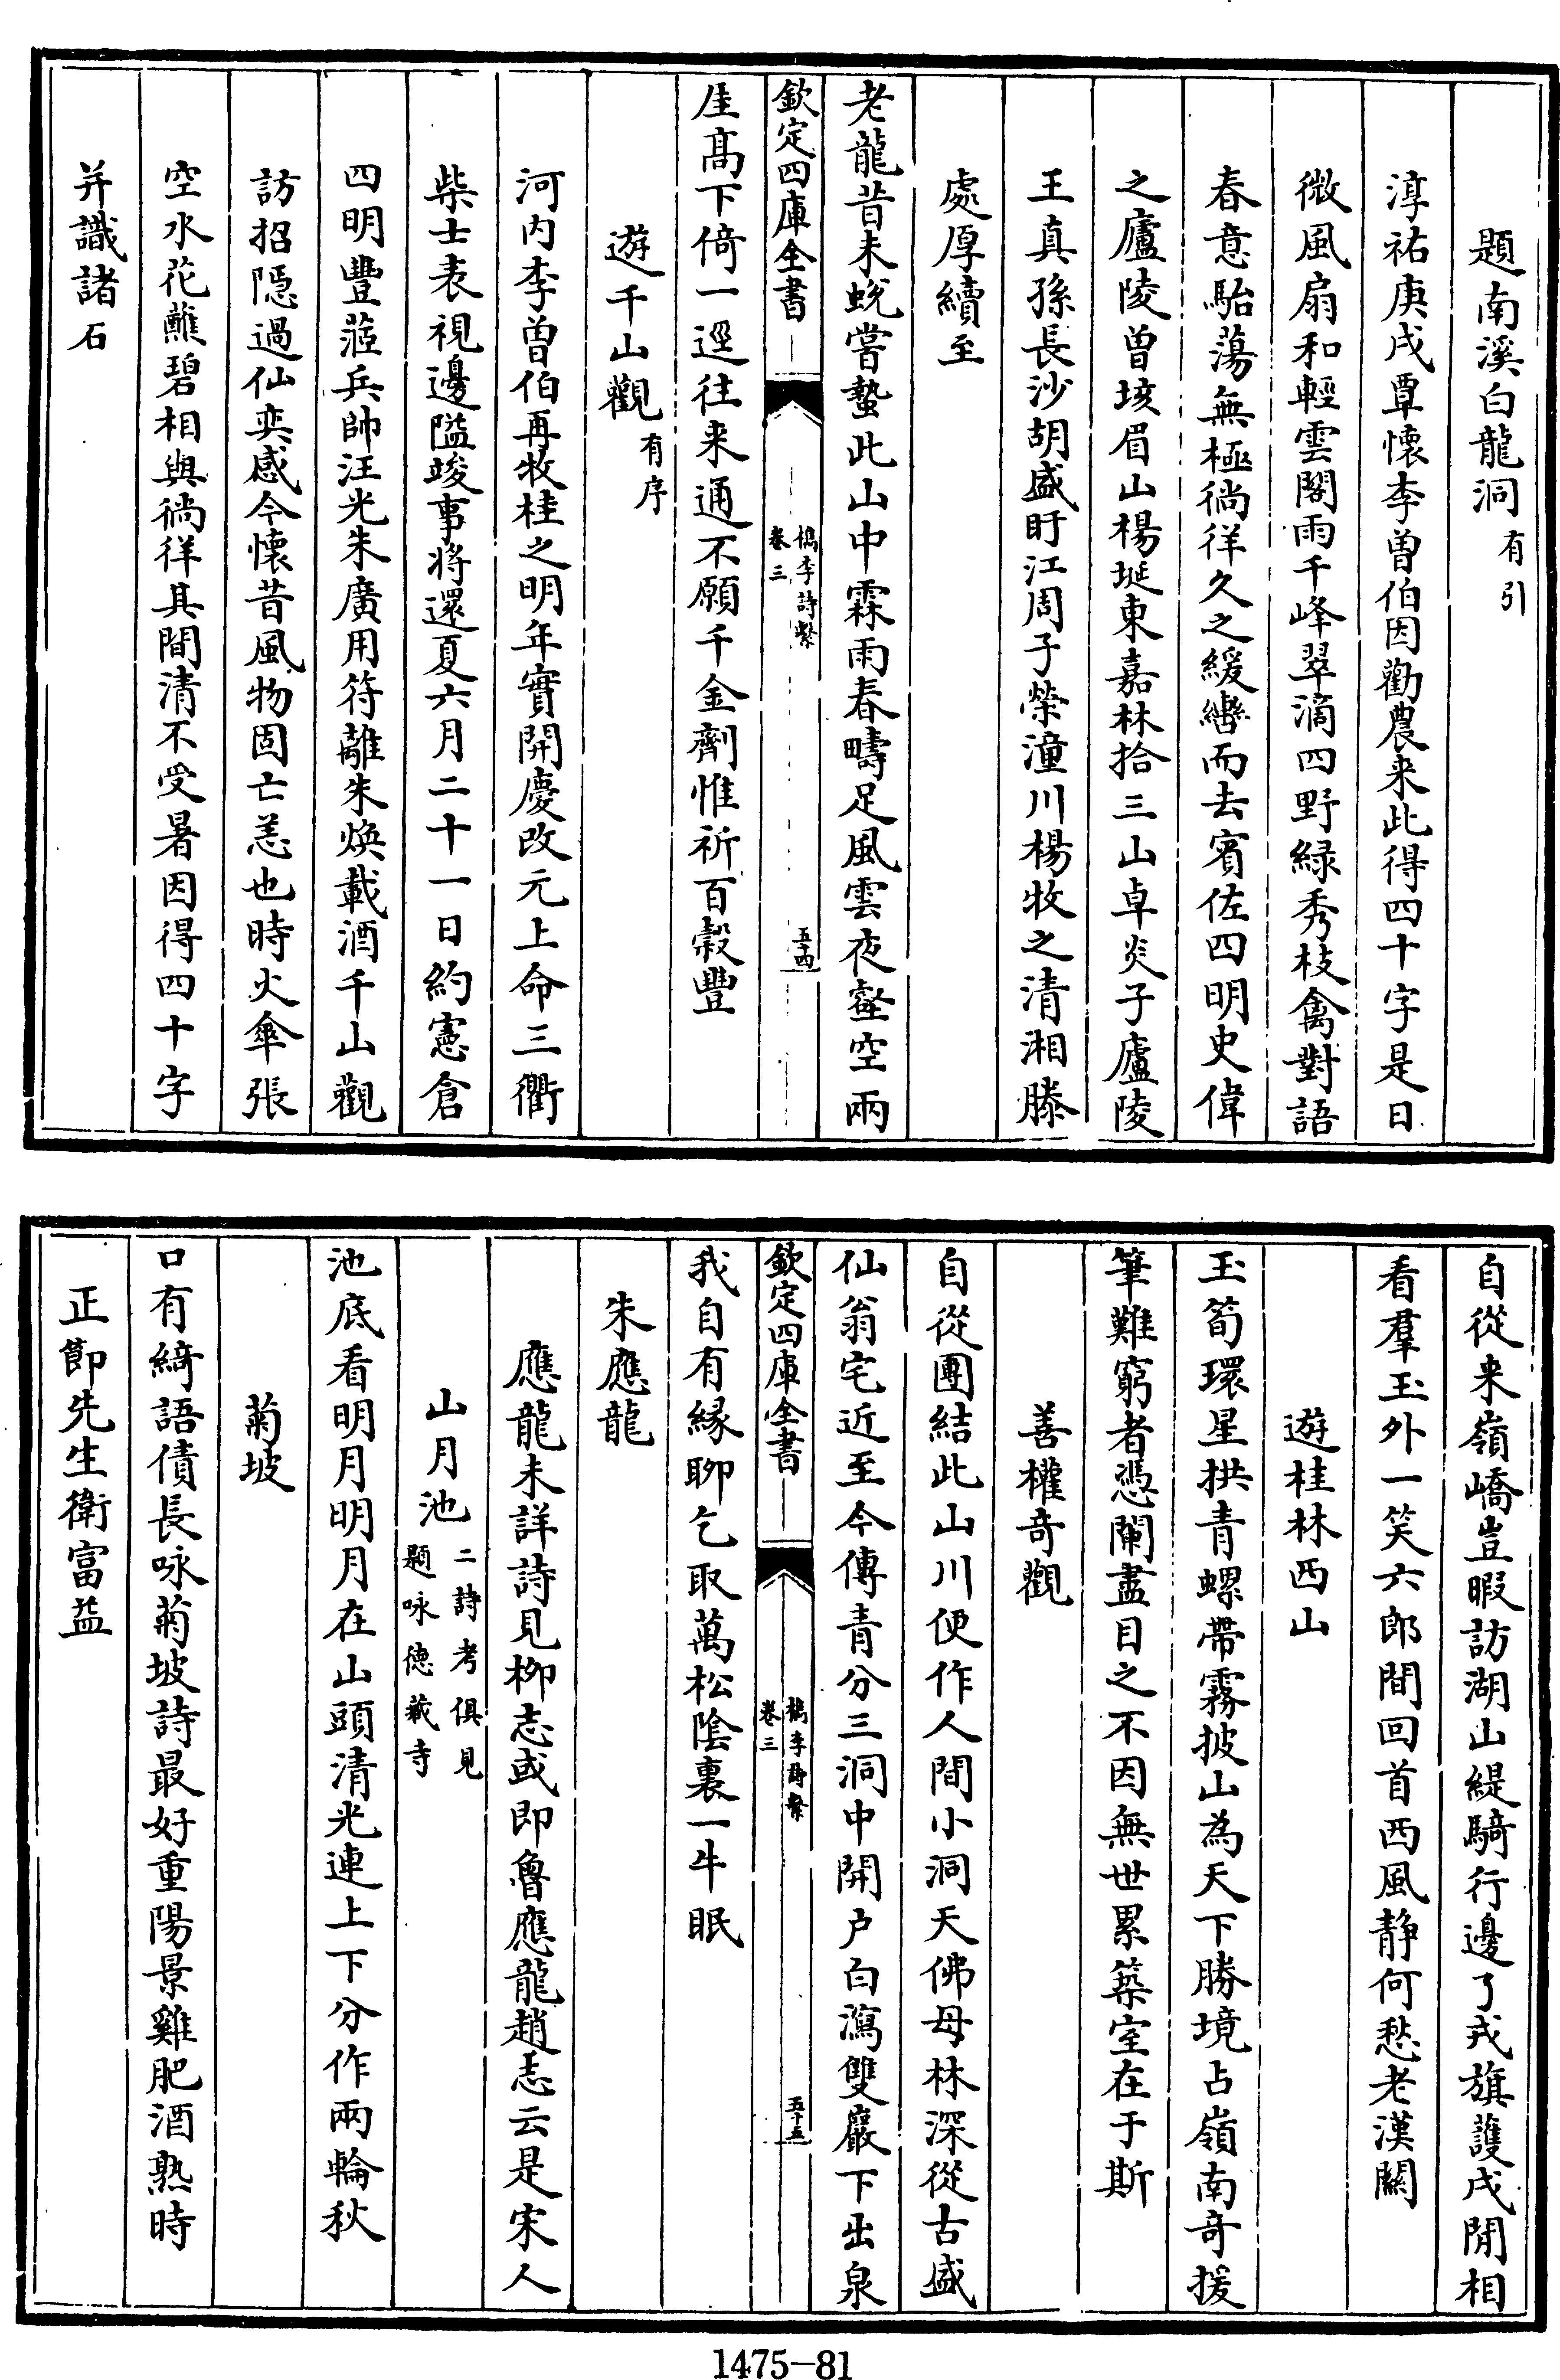 題南溪白龍洞有引
淳祐庚戌覃懐李曽伯因勸農来此得四十字是日
微風扇和輕雲閣雨千峰翠滴四野緑秀枝禽對語
春意駘蕩無極徜徉久之緩轡而去賓佐四明史偉
之廬陵曽垓眉山楊埏東嘉林拾三山卓炎子廬陵
王真孫長沙胡盛盱江周子榮潼川楊牧之清湘滕
處厚續至
老龍昔未蛻嘗蟄此山中霖雨春疇足風雲夜壑空兩
欽定四庫全書
檇李詩繫
卷三
五十四
厓髙下倚一逕往来通不願千金劑惟祈百穀豐
遊千山觀有序
河内李曽伯再牧桂之明年實開慶改元上命三衢
柴士表視邊隘竣事将還夏六月二十一日約憲倉
四明豐蒞兵帥汪光朱廣用符離朱煥載酒千山觀
訪招隠過仙奕感今懐昔風物固亡恙也時火傘張
空水花蘸碧相與徜徉其間清不受暑因得四十字
并識諸石
自從来嶺嶠豈暇訪湖山緹騎行邊了戎旗護戍閒相
看羣玉外一笑六郎間回首西風靜何愁老漢關
遊桂林西山
玉筍環星拱青螺帶霧披山為天下勝境占嶺南竒援
筆難窮者憑闌盡目之不因無世累築室在于斯
善權竒觀
自從團結此山川便作人間小洞天佛母林深從古盛
仙翁宅近至今傳青分三洞中開户白瀉雙巖下出泉
欽定四庫全書
檇李詩繫
卷三
五十五
我自有縁聊乞取萬松陰裏一牛眠
朱應龍
應龍未詳詩見栁志或即魯應龍趙志云是宋人
山月池二詩考俱見題咏德藏寺
池底看明月明月在山頭清光連上下分作兩輪秋
菊坡
口有綺語債長咏菊坡詩最好重陽景雞肥酒熟時
正節先生衛富益
1475-81